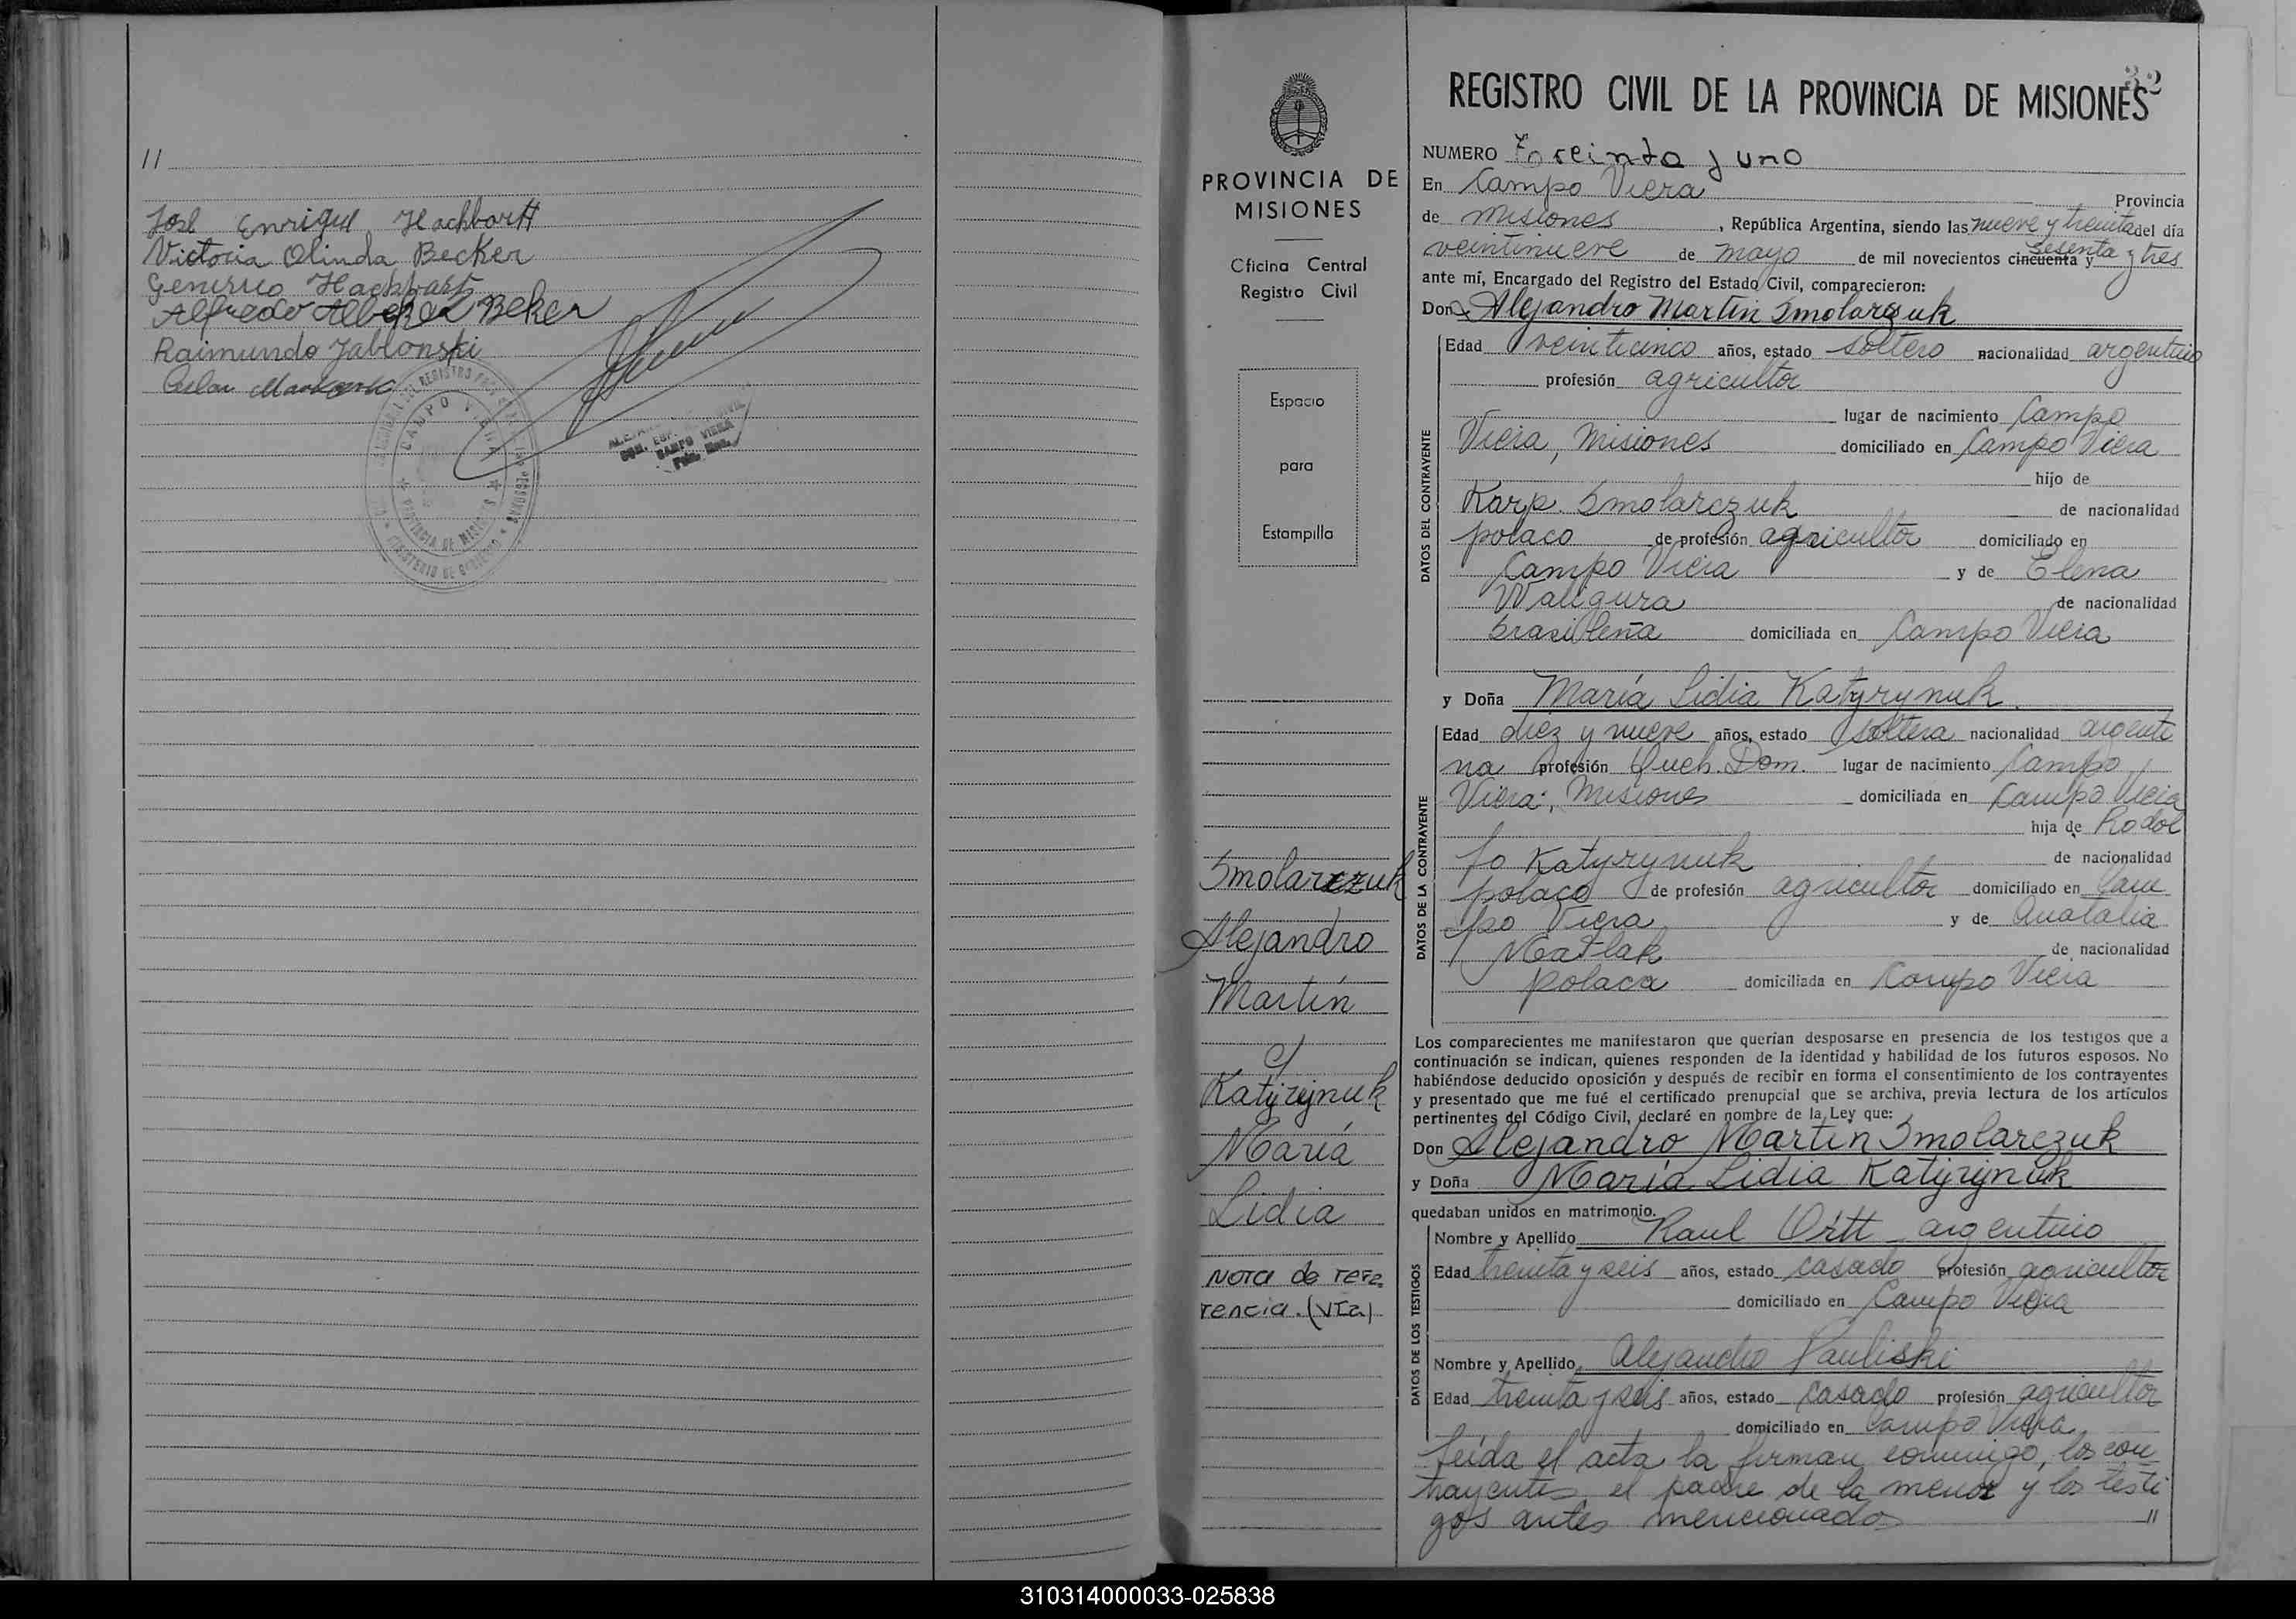 //
José Enrique Hachbartt
Victoria Olinda Becker
Generico Hachbart
Alfredo Beker
Raimundo Jablonski
CAMPO VIERA
PROVINCIA DE MISIONES
MINISTERIO DE GOBIERNO
CAMPO VIERA
PROVINCIA DE
MISIONES
Oficina Central
Registro Civil
Espacio
para
Estampilla
Smolarczuk
Alejandro
Martín
y
Katyrynuk
María
Lidia
Nota de refe
rencia. (Vta)
32
REGISTRO CIVIL DE LA PROVINCIA DE MISIONES
NUMERO Treinta y uno
En Campo Viera Provincia
de Misiones, República Argentina, siendo las nueve y treinta del día
veintinueve de mayo de mil novecientos cincuenta y sesenta y tres
ante mí, Encargado del Registro del Estado Civil, comparecieron:
Don Alejandro Martín Smolarczuk
DATOS DEL CONTRAYENTE
Edad veinticinco años, estado soltero nacionalidad argentino
profesión agricultor
lugar de nacimiento Campo
Viera, Misiones domiciliado en Campo Viera
hijo de
Karp Smolarczuk de nacionalidad
polaco de profesión agricultor domiciliado en
Campo Viera y de Elena
Waligura de nacionalidad
brasileña domiciliada en Campo Viera
y Doña María Lidia Katyrynuk.
DATOS DE LA CONTRAYENTE
Edad diez y nueve años, estado soltera nacionalidad argenti
na profesión Queh. Dom. lugar de nacimiento Campo
Viera, Misiones domiciliada en Campo Viera
hija de Rodol
fo Katyrynuk de nacionalidad
polaco de profesión agricultor domiciliado en Cam
po Viera y de Anatalia
Matlak de nacionalidad
polaca domiciliada en Campo Viera
Los comparecientes me manifestaron que querían desposarse en presencia de los testigos que a
continuación se indican, quienes responden de la identidad y habilidad de los futuros esposos. No
habiéndose deducido oposición y después de recibir en forma el consentimiento de los contrayentes
y presentado que me fué el certificado prenupcial que se archiva, previa lectura de los artículos
pertinentes del Código Civil, declaré en nombre de la Ley que:
Don Alejandro Martín Smolarczuk
y Doña María Lidia Katyrynuk
quedaban unidos en matrimonio.
DATOS DE LOS TESTIGOS
Nombre y Apellido Raul Ortt argentino
Edad treinta y seis años, estado casado profesión agricultor
domiciliado en Campo Viera
Nombre y Apellido Alejandro Pauliski
Edad treinta y seis años, estado casado profesión agricultor
domiciliado en Campo Viera
Leída el acta la firman conmigo, los con
trayentes, el padre de la menor y los testi
gos antes mencionados //
310314000033-025838